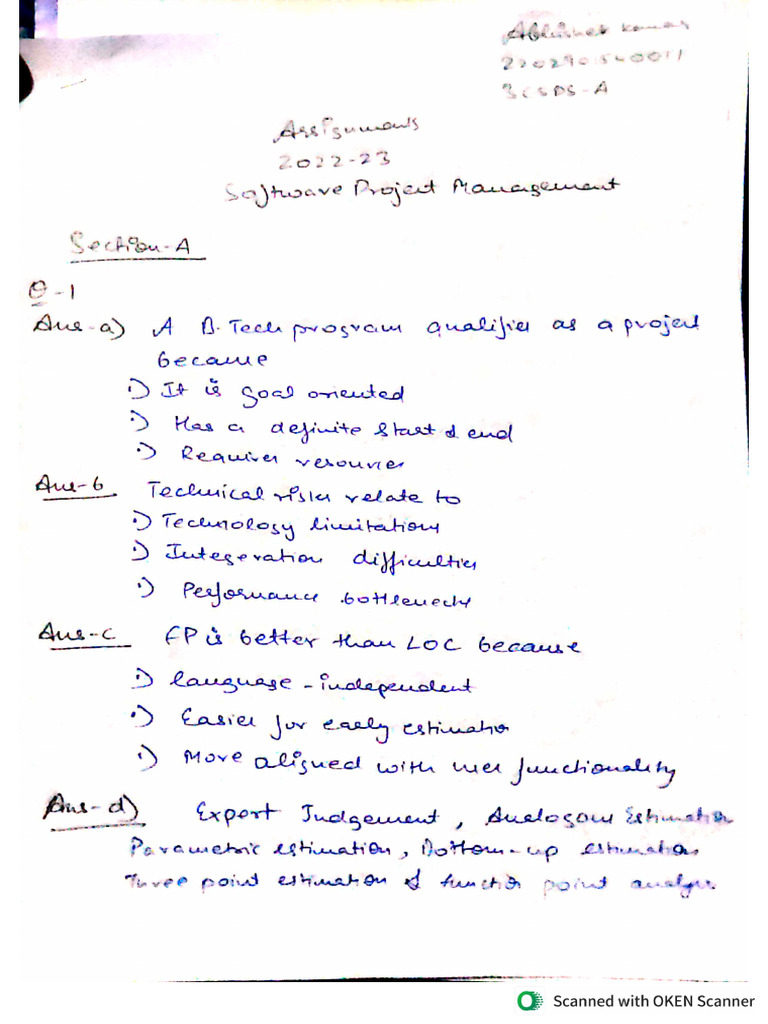 Abhishek Kumar
3CSDS-A
Assignments
2022-23
Software Project Management
Section-A
Q-1
Ans-a) A B.Tech program qualifies as a project
became
·) It is goal oriented
·) Has a definite start & end
·) Requires resources
Ans-b Technical risks relate to
·) Technology limitations
·) Integeration difficulties
·) Performance bottlenecks
Ans-c FP is better than LOC because
·) language-independent
·) Easier for early estimation
·) More aligned with user functionality
Ans-d) Expert Judgement, Analogous Estimation
Parametric estimation, Bottom-up estimation
Three point estimation & function point analysis
Scanned with OKEN Scanner